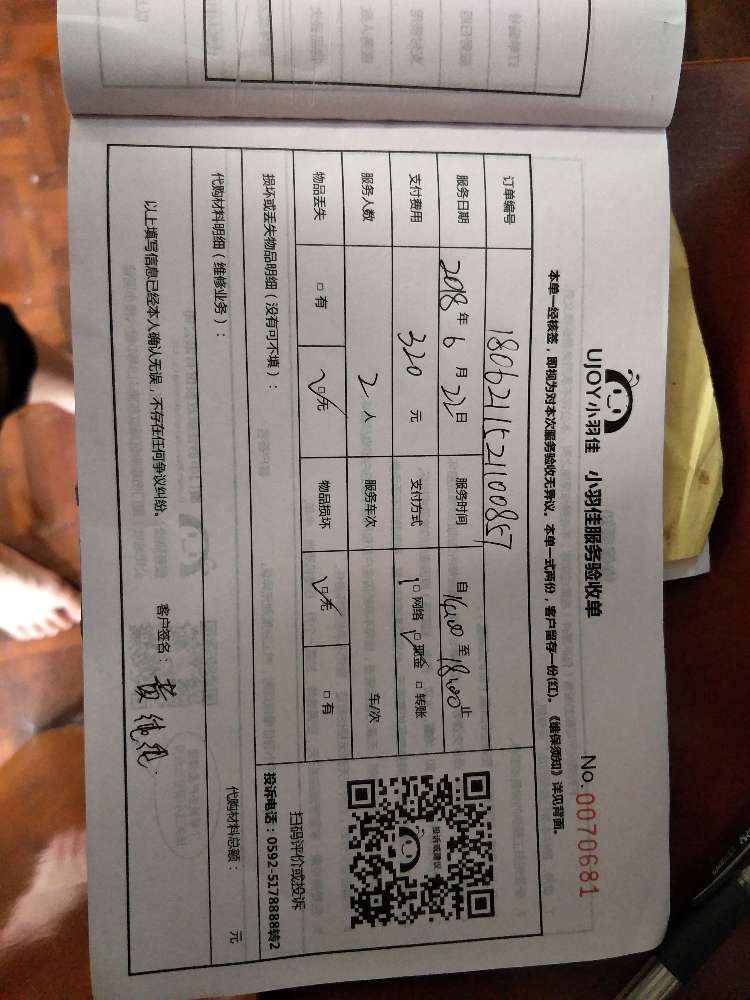 UJOY小羽佳 小羽佳服务验收单
No.0070681
本单一经核签，即视为对本次服务验收无异议。本单一式两份，客户留存一份(红)。《维保须知》详见背面。
订单编号 180621152100857
服务日期 2018年6月22日 服务时间 自16:00至18:00止
支付费用 320元 支付方式 □网络 ☑现金 □转账
服务人数 2人 服务车次 车/次
物品丢失 □有 ☑无 物品损坏 ☑无 □有
投诉或建议
扫码评价或投诉
投诉电话：0592-5178888转2
损坏或丢失物品明细（没有可不填）：
代购材料明细（维修业务）： 代购材料总额： 元
以上填写信息已经本人确认无误，不存在任何争议纠纷。 客户签名：黄